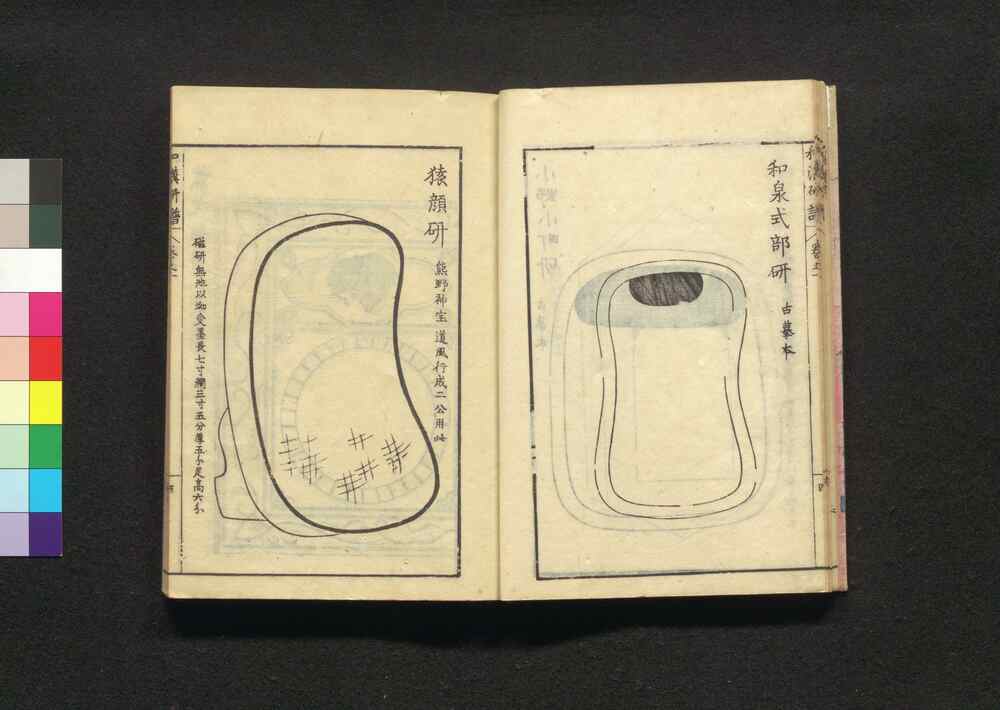 和泉式部研
古摹本
猿顔研
熊野神宝道風行成二公用
磁研無池以凹受墨長七寸濶三寸五分厚五分足高六分
和漢研譜